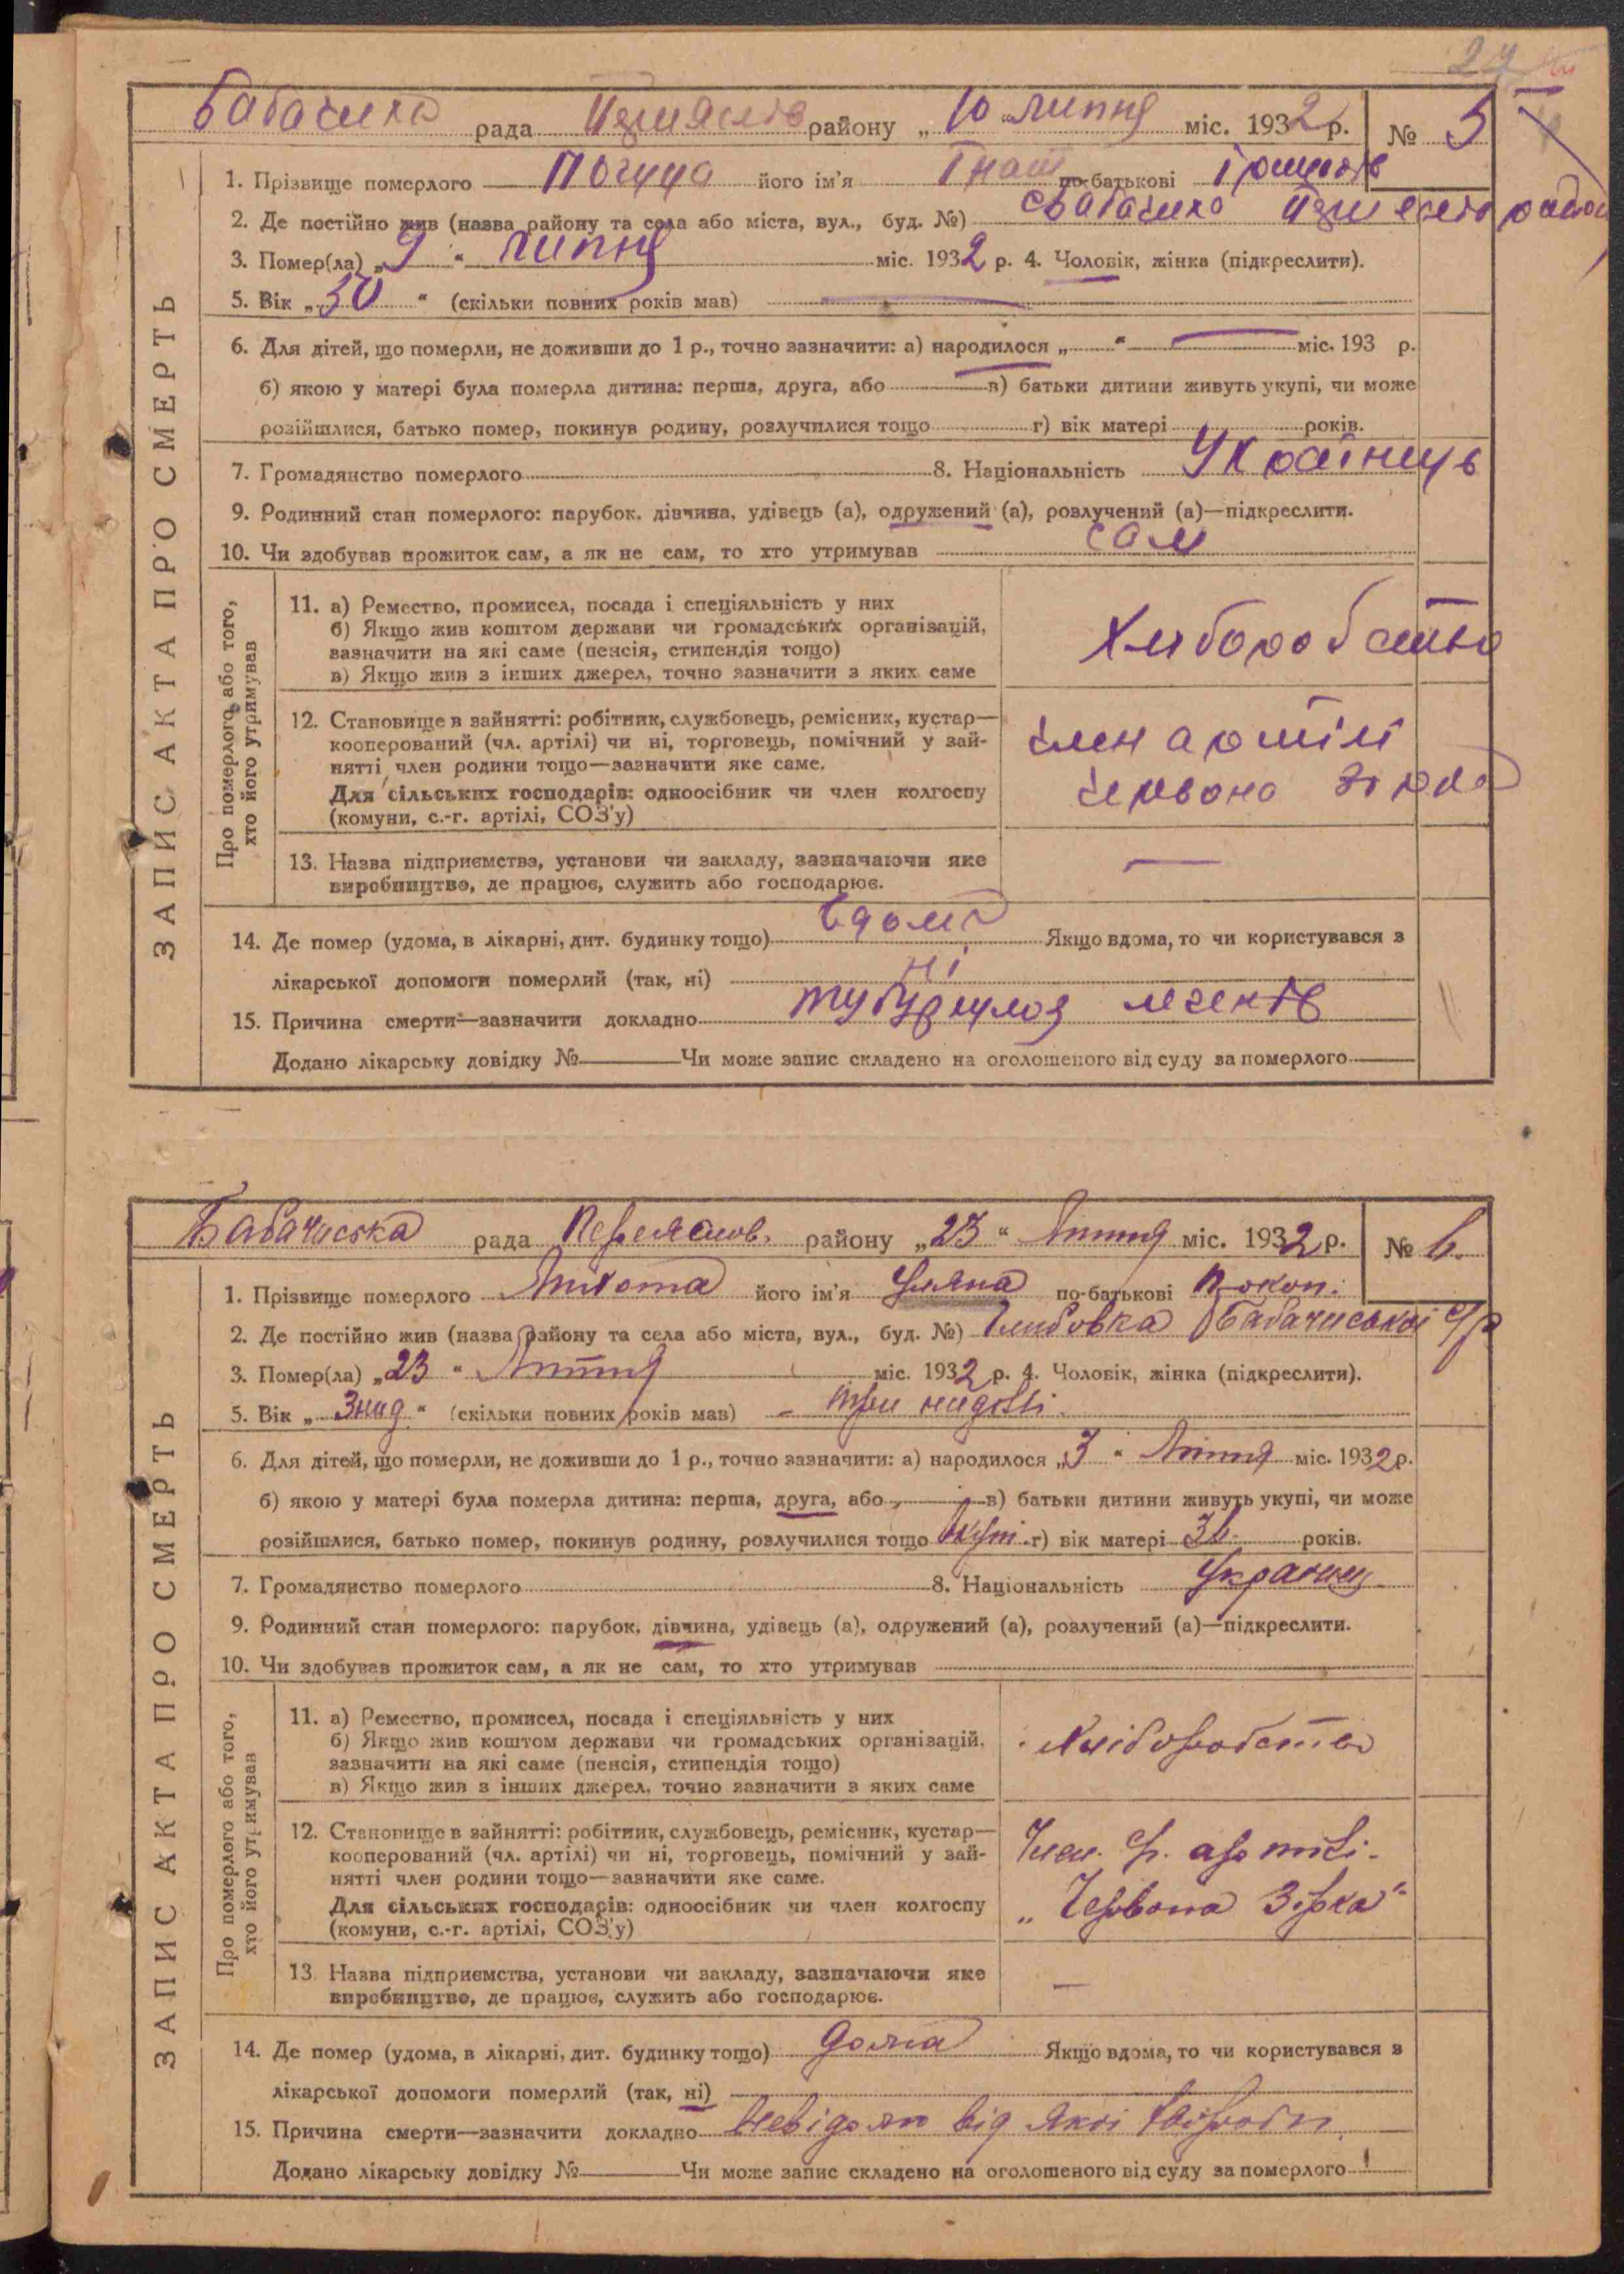 24
Бабачиха рада району „10“ липня міс. 1932 р. № 5
1. Прізвище померлого його ім'я Гнат по-батькові
2. Де постійно жив (назва району та села або міста, вул., буд. №)
3. Помер(ла) „9“ липня міс. 1932 р. 4. Чоловік, жінка (підкреслити).
5. Вік „50“ (скільки повних років мав) —
6. Для дітей, що померли, не доживши до 1 р., точно зазначити: а) народилося „ “ — міс. 193 р.
б) якою у матері була померла дитина: перша, друга, або — в) батьки дитини живуть укупі, чи може
розійшлися, батько помер, покинув родину, розлучилися тощо г) вік матері років.
7. Громадянство померлого 8. Національність Українць
9. Родинний стан померлого: парубок, дівчина, удівець (а), одружений (а), розлучений (а)—підкреслити.
10. Чи здобував прожиток сам, а як не сам, то хто утримував сам
11. а) Ремество, промисел, посада і спеціяльність у них
б) Якщо жив коштом держави чи громадських організацій,
зазначити на які саме (пенсія, стипендія тощо)
в) Якщо жив з інших джерел, точно зазначити з яких саме
Хлиборобство
12. Становище в зайнятті: робітник, службовець, ремісник, кустар—
кооперований (чл. артілі) чи ні, торговець, помічний у зай-
нятті, член родини тощо—зазначити яке саме.
Для сільських господарів: одноосібник чи член колгоспу
(комуни, с.-г. артілі, СОЗ'у)
член артілі
червона зірка
13. Назва підприємства, установи чи закладу, зазначаючи яке
виробництво, де працює, служить або господарює.
—
14. Де помер (удома, в лікарні, дит. будинку тощо) вдомі Якщо вдома, то чи користувався з
лікарської допомоги померлий (так, ні) ні
15. Причина смерти—зазначити докладно
Додано лікарську довідку № — Чи може запис складено на оголошеного від суду за померлого —
ЗАПИС АКТА ПРО СМЕРТЬ
Про померлого, або того,
хто його утримував
Бабачиська рада Переяслов. району „23“ Липня міс. 1932 р. № 6.
1. Прізвище померлого його ім'я Уляна по-батькові Прокоп.
2. Де постійно жив (назва району та села або міста, вул., буд. №) Глибовка Бабачиської с/р
3. Помер(ла) „23“ Липня міс. 1932 р. 4. Чоловік, жінка (підкреслити).
5. Вік „3 нид.“ (скільки повних років мав) – три нидолі.
6. Для дітей, що померли, не доживши до 1 р., точно зазначити: а) народилося „3“ Липня міс. 1932 р.
б) якою у матері була померла дитина: перша, друга, або — в) батьки дитини живуть укупі, чи може
розійшлися, батько помер, покинув родину, розлучилися тощо Вкупі г) вік матері 36 років.
7. Громадянство померлого 8. Національність
9. Родинний стан померлого: парубок, дівчина, удівець (а), одружений (а), розлучений (а)—підкреслити.
10. Чи здобував прожиток сам, а як не сам, то хто утримував
11. а) Ремество, промисел, посада і спеціяльність у них
б) Якщо жив коштом держави чи громадських організацій,
зазначити на які саме (пенсія, стипендія тощо)
в) Якщо жив з інших джерел, точно зазначити з яких саме
Хліборобство
12. Становище в зайнятті: робітник, службовець, ремісник, кустар—
кооперований (чл. артілі) чи ні, торговець, помічний у зай-
нятті член родини тощо—зазначити яке саме.
Для сільських господарів: одноосібник чи член колгоспу
(комуни, с.-г. артілі, СОЗ'у)
Член артілі.
„Червона Зірка“
13. Назва підприємства, установи чи закладу, зазначаючи яке
виробництво, де працює, служить або господарює.
—
14. Де помер (удома, в лікарні, дит. будинку тощо) дома Якщо вдома, то чи користувався з
лікарської допомоги померлий (так, ні)
15. Причина смерти—зазначити докладно Невідомо від якої хвороби
Додано лікарську довідку № — Чи може запис складено на оголошеного від суду за померлого
ЗАПИС АКТА ПРО СМЕРТЬ
Про померлого або того,
хто його утримував